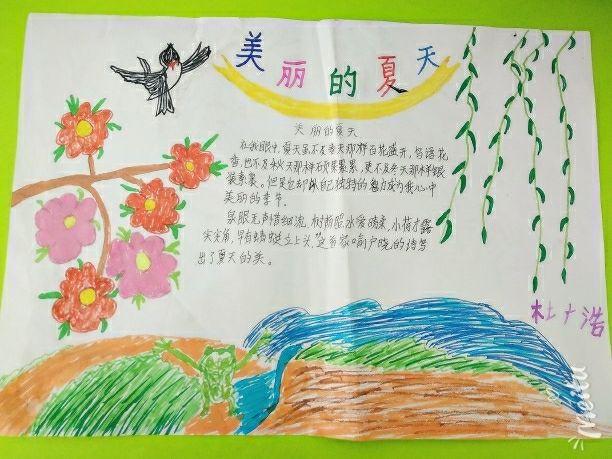 美丽的夏天
美丽的夏天
在我眼中,夏天虽不及春天那样百花盛开,鸟语花
香,也不及秋天那样硕果累累,更不及冬天那样银
装素裹。但夏也却以自己独特的魅力成为我心中
美丽的季节。
泉眼无声惜细流,树荫照水爱晴柔,小荷才露
尖尖角,早有蜻蜓立上头,这首家喻户晓的诗写
出了夏天的美。
杜广浩
Meitu